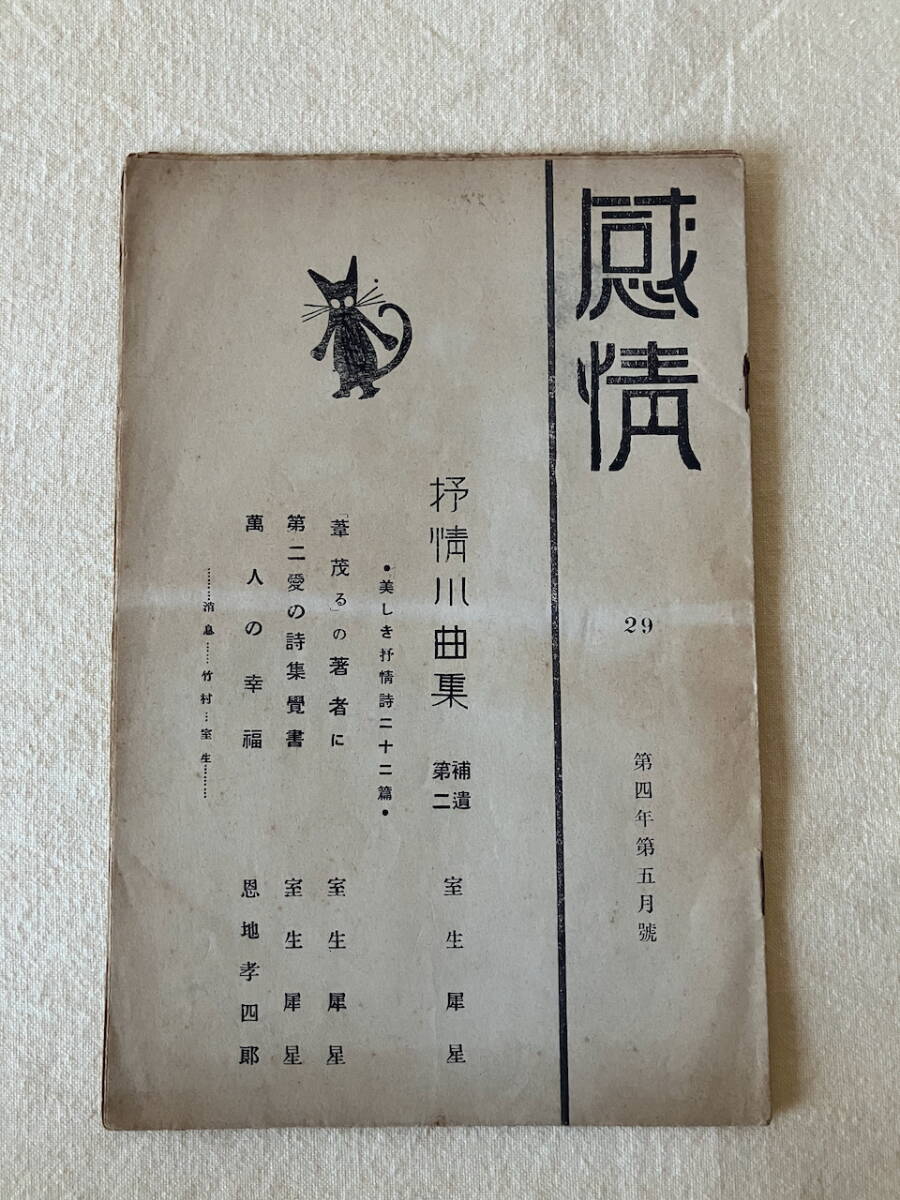 感情
29
第四年第五月號
抒情小曲集 補遺第二 室生犀星
•美しき抒情詩二十二篇•
「葦茂る」の著者に 室生犀星
第二愛の詩集覺書 室生犀星
萬人の幸福 恩地孝四郞
………消息……竹村…室生………